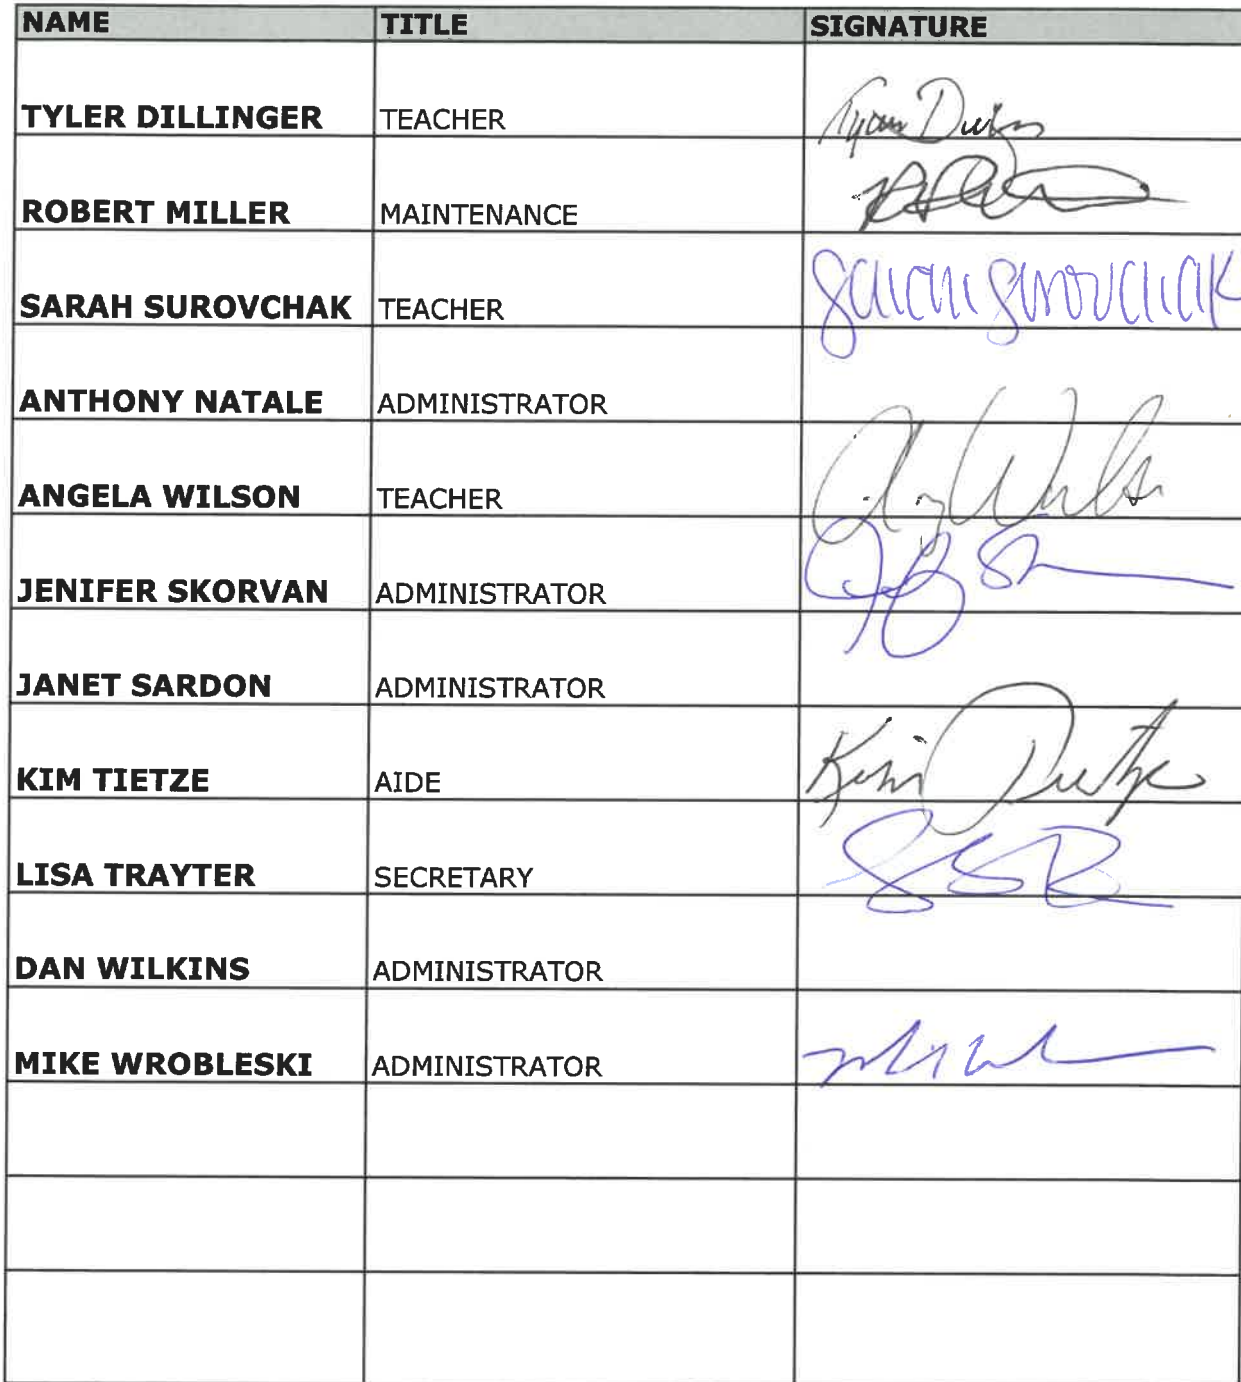 NAME TITLE SIGNATURE
TYLER DILLINGER TEACHER
ROBERT MILLER MAINTENANCE
SARAH SUROVCHAK TEACHER Sarah Surovchak
ANTHONY NATALE ADMINISTRATOR
ANGELA WILSON TEACHER
JENIFER SKORVAN ADMINISTRATOR
JANET SARDON ADMINISTRATOR
KIM TIETZE AIDE Kim Tietze
LISA TRAYTER SECRETARY
DAN WILKINS ADMINISTRATOR
MIKE WROBLESKI ADMINISTRATOR